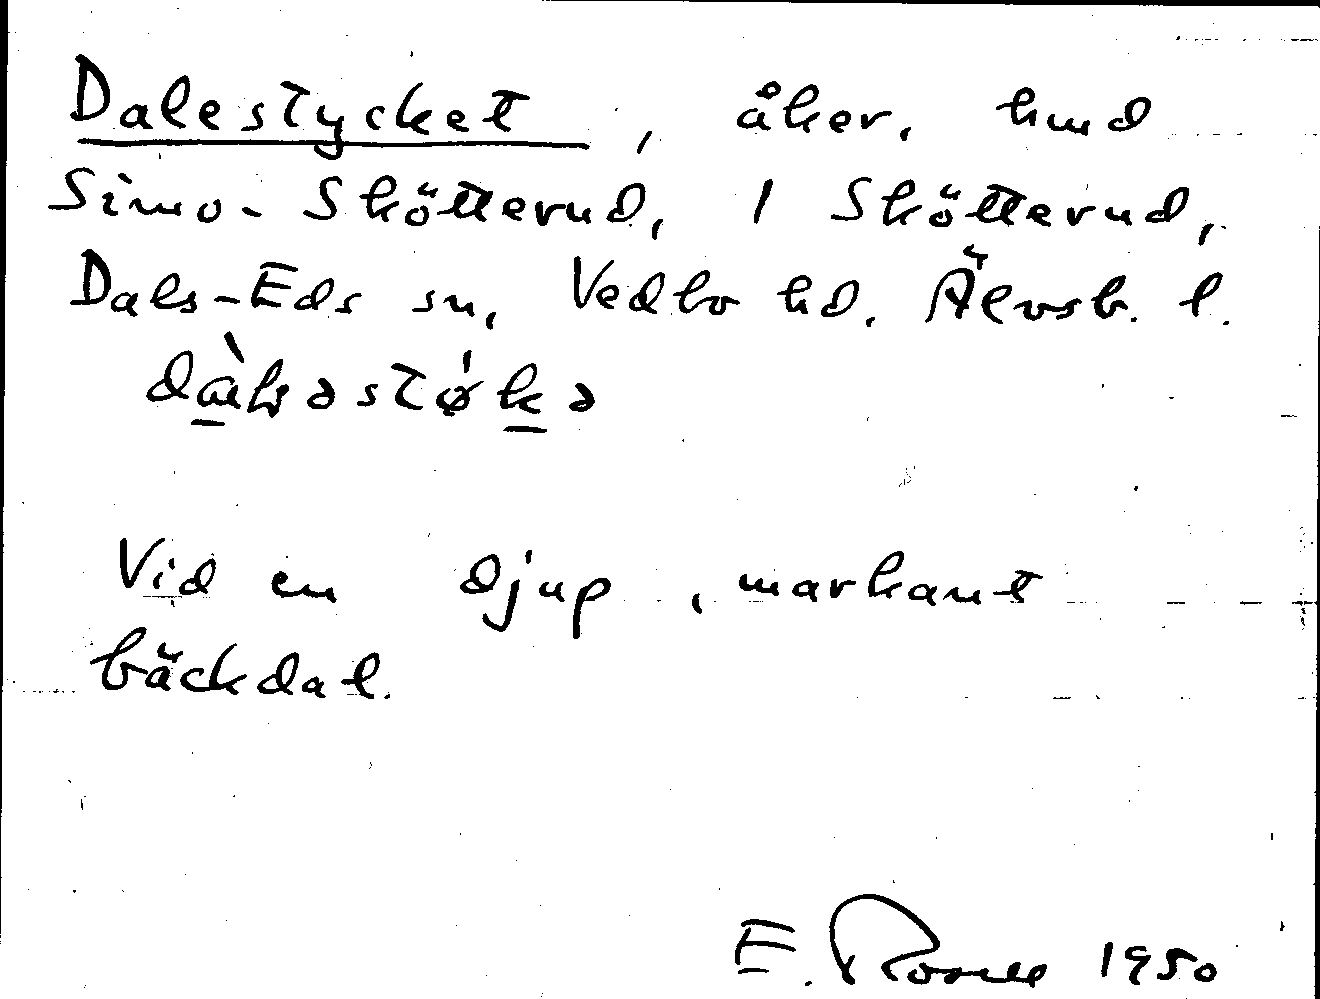 Dalestycket, åker, hmd
Simo- Skötterud, 1 Skötterud,
Dals-Eds sn, Vedbo hd. Älvsb. l.
Vid en djup, markant
bäckdal.
E. 1950